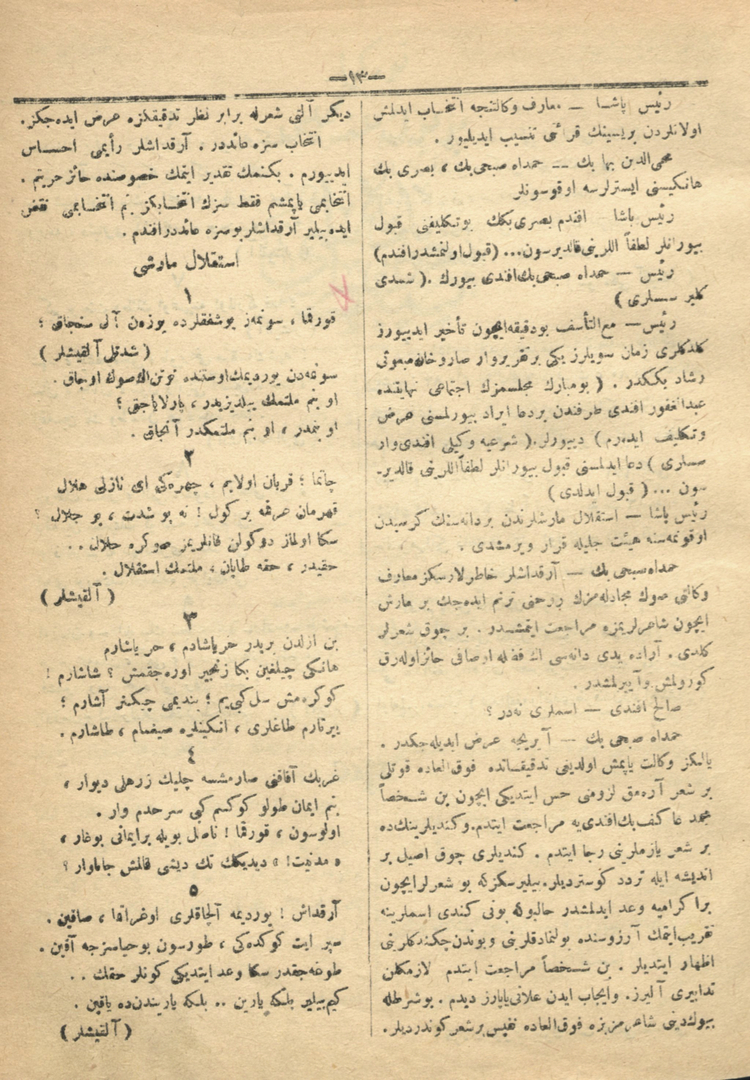 —٩٣—
رئیس پاشا — معارف وکالتنجه انتخاب ایدلمش
اولانلردن بریسینك قرائتی تنسیب ایدیلیور .
محی‌الدین بها بك — حمدالله صبحی بك ، بصری بك
هانکیسنی ایسترلرسه اوقوسونلر
رئیس پاشا — افندم بصری بکك بوتکلیفنی قبول
بیورانلر لطفاً اللرینی قالدیرسون... (قبول اولنمشدر افندم)
رئیس — حمدالله صبحی بك افندی بیورك .( شمدی
کلیر سسلری )
رئیس — مع التأسف بودقیقه ایچون تأخیر ایدییورز
کلدکلری زمان سویلرز یکی برتقریروار صاروخان مبعوثی
رشاد بککدر . ( بومبارك مجلسمزك اجتماعی نهایتنده
عبدالغفور افندی طرفندن بردعا ایراد بیورلمسنی عرض
وتکلیف ایدەرم ) دییورلر.( شرعیه وکیلی افندی وار
صداری ) دعا ایدلمسنی قبول بیورانلر لطفاً اللرینی قالدیر-
سون ... ( قبول ایدلدی )
رئیس پاشا — استقلال مارشلرندن بردانه‌سنك کرسیدن
اوقونمه‌سنه هیئت جلیله قرار ویرمشدی .
حمدالله صبحی بك — آرقداشلر خاطرلارسکز معارف
وکالتی صوك مجادله‌مزك روحنی ترنم ایده‌جك بر مارش
ایچون شاعرلریمزه مراجعت ایتمشدر . بر چوق شعرلر
کلدی . آراده یدی دانه‌سی اك فضله اوصافی حائز اوله‌رق
کورولمش وآییرلمشدر .
صالح افندی — اسملری نه‌در ؟
حمدالله صبحی بك — آیریجه عرض ایدیله‌جکدر .
یالکز وکالت یاپمش اولدیغی تدقیقاتده فوق العاده قوتلی
بر شعر آرەمق لزومنی حس ایتدیکی ایچون بن شخصاً
محمد عاکف بك افندی‌یه مراجعت ایتدم. وکندیلرینك‌ده
بر شعر یازملرینی رجا ایتدم . کندیلری چوق اصیل بر
اندیشه ایله تردد کوستردیلر. بیلیرسکزکه بو شعرلر ایچون
براکرامیه وعد ایدلمشدر حالبوکه بونی کندی اسملرینه
تقریب ایتمك آرزوسنده بولنمادقلرینی وبوندن چکندکلرینی
اظهار ایتدیلر . بن شخصاً مراجعت ایتدم لازم‌کلن
تدابیری آلیرز. وایجاب ایدن علانی یاپارز دیدم . بوشرطله
بیوك دینی شاعر مزبزه فوق العاده نفیس برشعر کوندردیلر.
دیکر آلتی شعرله برابر نظر تدقیقکزه عرض ایده‌جکز .
انتخاب سزه عائددر . آرقداشلر رأیمی احساس
ایدییورم . بکنمك تقدیر ایتمك خصوصنده حائز حریتم .
انتخابمی یاپمشم فقط سزك انتخابکز بنم انتخابمی نقض
ایده بیلیر آرقداشلر بوسزه عائددر افندم .
استقلال مارشی
١
قورقما ، سونمەز بوشفقلرده یوزەن آل سنجاق ؛
( شدتلی آلقیشلر )
سونمەدن یوردیمك اوستنده توتن اك صوك اوجاق .
او بنم ملتمك ییلدیزیدر ، پارلایاجق ؛
او بنمدر ، او بنم ملتمکدر آنجاق .
٢
چاتما ؛ قربان اولایم ، چهره‌کی ای نازلی هلال
قهرمان عرقمه بر کول ! نه بو شدت ، بو جلال ؟
سکا اولماز دوکولن قانلریمز صوکره حلال . .
حقیدر ، حقه طاپان ، ملتمك استقلال .
( آلقیشلر )
٣
بن ازلدن بریدر حریاشادم ، حر یاشارم
هانکی چیلغین بکا زنجیر اورەجقمش ؟ شاشارم !
کوکره‌مش سل کبی‌یم ؛ بندیمی چیکنر آشارم ؛
ییرتارم طاغلری ، انکینلره صیغمام ، طاشارم .
٤
غربك آفاقنی صارمشسه چلیك زرهلی دیوار ،
بنم ایمان طولو کوکسم کبی سرحدم وار .
اولوسون ، قورقما ! ناصل بویله برایمانی بوغار ،
« مدنیت! » دیدیکك تك دیشی قالمش جاناوار ؟
٥
آرقداش ! یوردیمه آلچاقلری اوغراتما ، صاقین .
سپر ایت کوکده‌کی ، طورسون بوحیاسزجه آقین .
طوغه‌جقدر سکا وعد ایتدیکی کونلر حقك . .
کیم بیلیر بلکه یارین .. بلکه یاریندن‌ده یاقین .
( آلقیشلر )